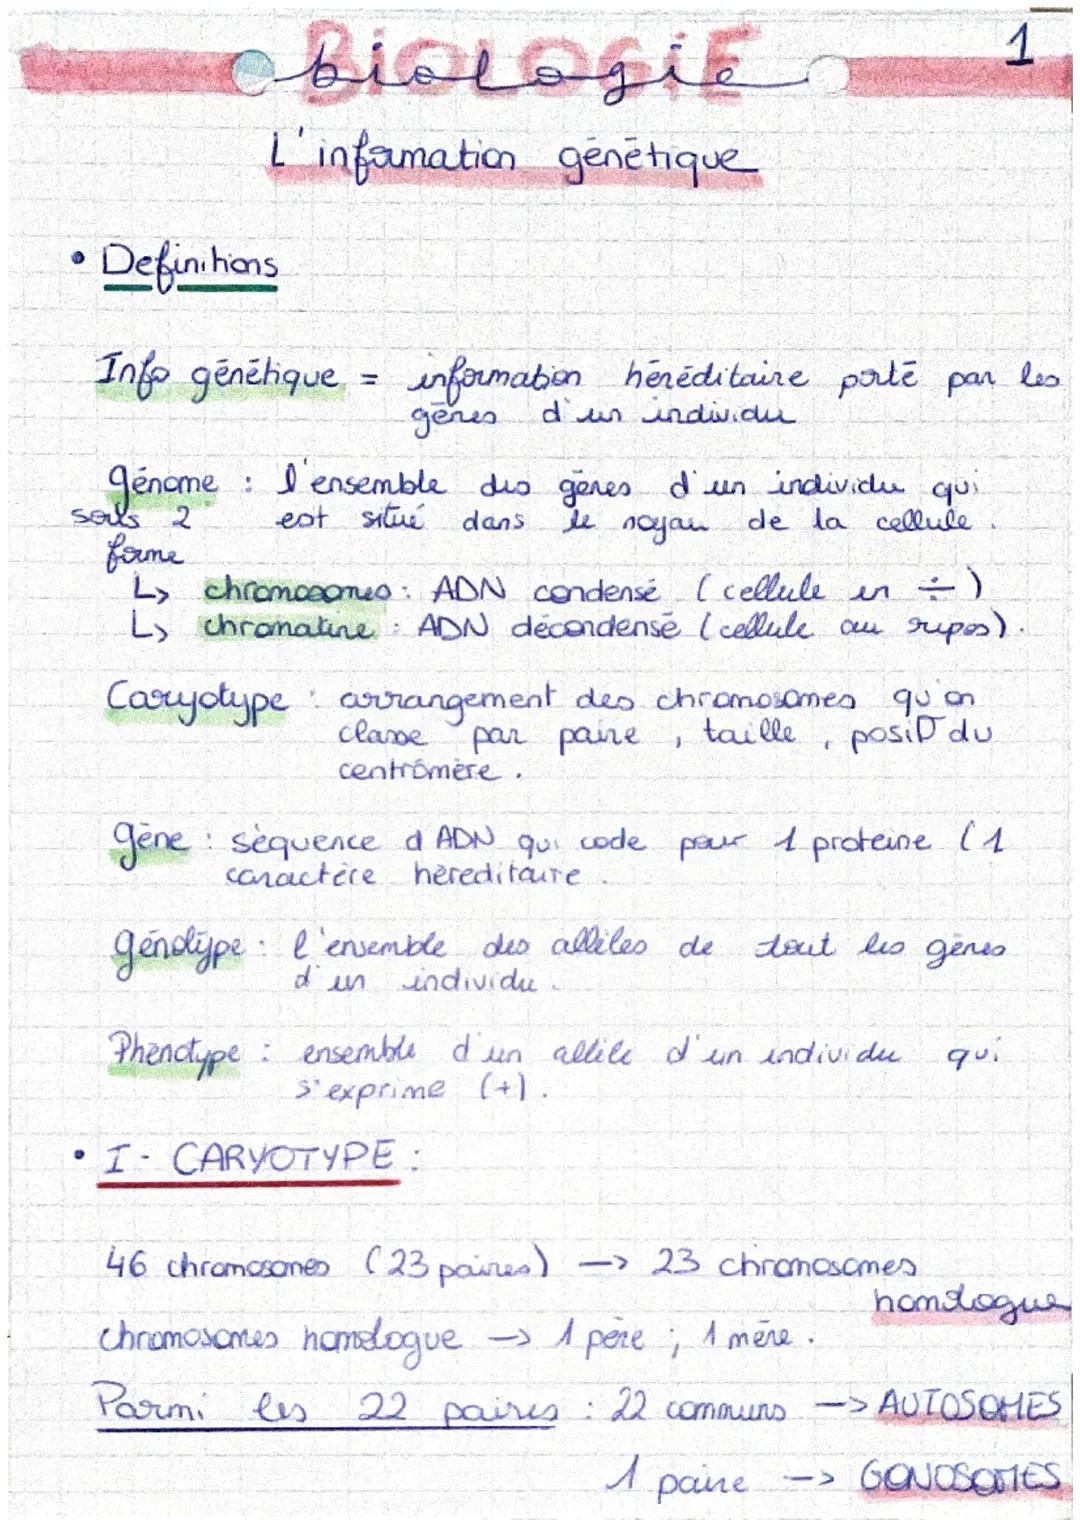 1
BIOLOGIE
biologie
L'information génétique
• Definitions
Info génétique = information héréditaire porté par les
gènes d'un individu
génome : l'ensemble des gènes d'un individu qui
sous 2 est situé dans le noyau de la cellule.
forme
↳ chromosomes : ADN condensé (cellule en ÷)
↳ chromatine : ADN décondensé (cellule au repos).
Caryotype : arrangement des chromosomes qu'on
classe par paire, taille, posit° du
centromère.
gène : séquence d'ADN qui code pour 1 proteine (1
caractère héreditaire.
génotype : l'ensemble des allèles de tout les gènes
d'un individu.
Phénotype : ensemble d'un allèle d'un individu qui
s'exprime (+).
• I - CARYOTYPE :
46 chromosomes (23 paires) -> 23 chromosomes
homologue
chromosomes homologue -> 1 père ; 1 mère.
Parmi les 22 paires : 22 communs -> AUTOSOMES
1 paire -> GONOSOMES